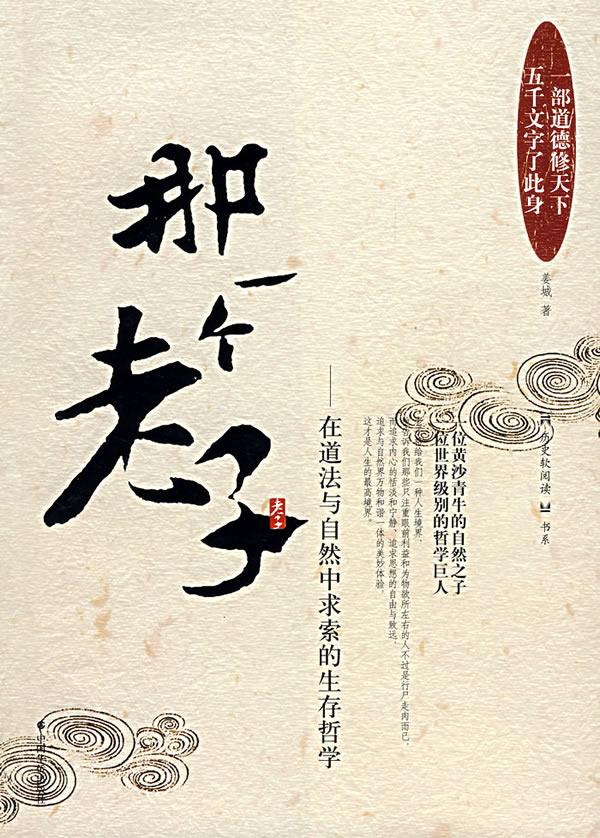 一部道德修天下
五千文字了此身
姜城 著
【历史软阅读】书系
一位黄沙青牛的自然之子
一位世界级别的哲学巨人
给我们一种人生境界，
告诉我们那些只注重眼前利益和为物欲所左右的人不过是行尸走肉而已，
而追求内心的恬淡和宁静、追求思想的自由与致远，
追求与自然界万物和谐一体的美妙体验，
这才是人生的最高境界。
那一个老子
老子
——在道法与自然中求索的生存哲学